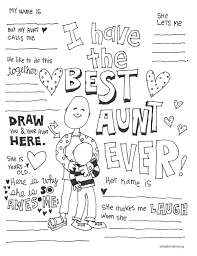 MY NAME IS
BUT MY AUNT
CALLS ME
SHE
LETS ME
I have
the
BEST
AUNT
EVER!
We like to do this
together
DRAW
YOU & YOUR AUNT
HERE.
SHE IS
YEARS
OLD.
Here is why
she is
SO
AWESOME
Her name is
She makes me LAUGH
when she